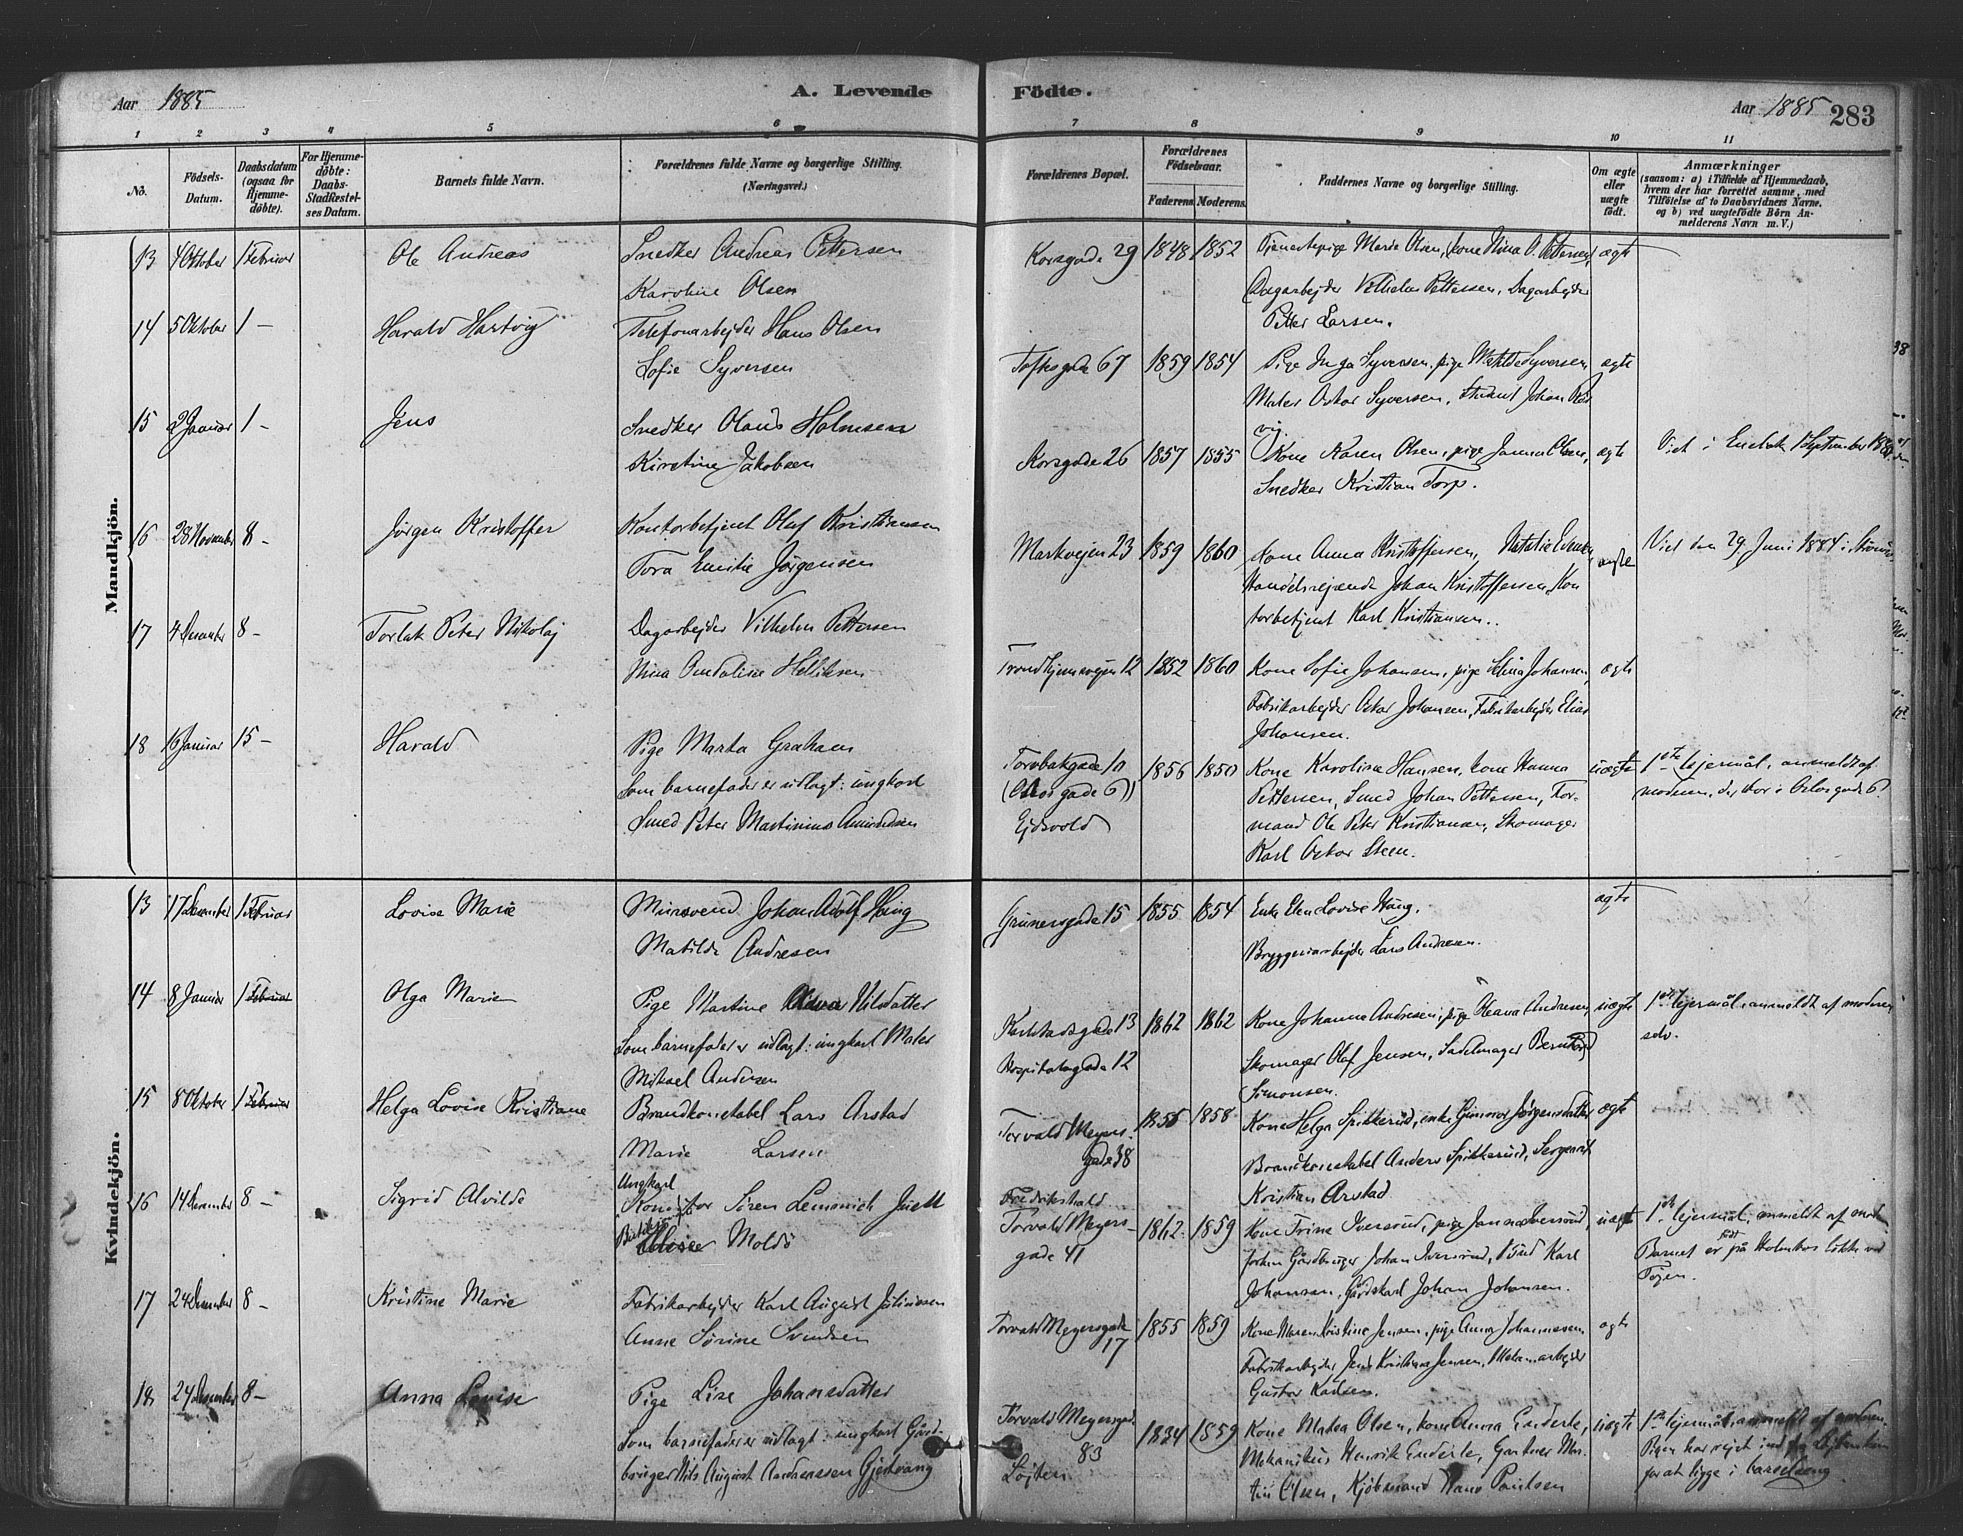 Aar 1885
A. Levende Födte.
Aar 1885
283
1 2 3 4 5 6 7 8 9 10 11
No.
Födsels-Datum.
Daabsdatum (ogsaa for Hjemme-döbte).
For Hjemme-döbte: Daabs-Stadfæstel-ses Datum.
Barnets fulde Navn.
Forældrenes fulde Navne og borgerlige Stilling. (Næringsvei.)
Forældrenes Bopæl.
Forældrenes Födselsaar.
Faderens. Moderens.
Faddernes Navne og borgerlige Stilling.
Om ægte eller uægte födt.
Anmærkninger
(saasom: a) i Tilfælde af Hjemmedaab, hvem der har forrettet samme, med Tilföielse af to Daabsvidners Navne, og b) ved uægtefödte Börn An-melderens Navn m. V.)
Mandkjön.
13 4 Oktober 1 Februar Ole Andreas
Snedker Andreas Pettersen
Karoline Olsen
Korsgade 29 1848 1852
Tjenestepige Marie Olsen, kone Nina O. Pettersen,
Dagarbejder Vilhelm Pettersen, Dagarbejder
Petter Larsen.
ægte
14 5 Oktober 1 — Harald Hartvig
Telefonarbejder Hans Olsen
Sofie Syversen
Toftesgade 67 1859 1854
Pige Inga Syversen, pige Matilde Syversen,
Maler Oskar Syversen, Student Johan
ægte
15 2 Januar 1 — Jens
Snedker Olaus Holmsen
Kirstine Jakobsen
Korsgade 26 1857 1855
Kone Karen Olsen, pige Janna Olsen,
Snedker Kristian Torp.
ægte
Viet i Enebak September
16 28 November 8 — Jørgen Kristoffer
Kontorbetjent Olaf Kristiansen
Tora Emilie Jørgensen
Markvejen 23 1859 1860
Kone Anna Kristoffersen, Natalie
Handelsrejsende Johan Kristoffersen, Kon
torbetjent Karl Kristiansen.
ægte
Viet den 29 Juni 1884 i
17 4 Desember 8 — Torlak Peter Nikolaj
Dagarbejder Vilhelm Pettersen
Nina Andaline Helliksen
Trondhjemsvejen 12 1852 1860
Kone Sofie Johansen, pige Johansen,
Fabrikarbejder Oskar Johansen, Fabrikarbejder Elias
Johansen.
ægte
18 16 Januar 15 — Harald
Pige Marta Graham
Som barnefader er udlagt: ungkarl
Smed Peter Martinius Amundsen
Torvbakgade 10
(Oslos gade 6)
Ejdsvold
1856 1850
Kone Karoline Hansen, kone Hanna
Pettersen, Smed Johan Pettersen, For-
mand Ole Peter Kristiansen, Skomager
Karl Oskar Steen.
uægte
1ste lejermål, anmeldt af
moderen, der bor i Oslos gade 6.
Kvindekjön.
13 17 Desember 1 Februar Lovise Marie
Mursvend Johan Adolf Haug
Matilde Andresen
Grünersgade 15 1855 1854
Enke Elen Lovise Haug.
Bryggeriarbejder Lars Andresen.
ægte
14 8 Januar 1 Februar Olga Marie
Pige Martine Nilsdatter
Som barnefader er udlagt: ungkarl Maler
Mikael Andersen
Karlstadsgade 13
Hospitalsgade 12
1862 1862
Kone Johanna Andresen, pige Andresen,
Skomager Olaf Jensen, Sadelmager Bernhard
Simonsen.
uægte
1ste lejermål, anmeldt af moderen
selv.
15 8 Oktober 1 Februar Helga Lovise Kristiane
Brandkonstabel Lars Arstad
Marie Larsen
Torvald Meyers
gade 38
1855 1858
Kone Helga Spikkerud, enke Gunnor Jørgensdatter
Brandkonstabel Anders Spikkerud, Sergeant
Kristian Arstad
ægte
16 14 Desember 8 — Sigrid Alvilde
Ungkarl
Konditor Sören Lemmich Juell
Moldö
Fredrikshald
Torvald Meyers
gade 41
1862 1859
Kone Trine Iversrud, pige Janna Iversrud,
Gårdbruger Johan Iversrud, Karl
Johansen, Gårdskarl Johan Johansen.
uægte
1ste lejermål, anmeldt af mod
Barnet er født på Holmbos løkke ved
Tøjen.
17 24 Desember 8 — Kristine Marie
Fabrikarbejder Karl August Juliussen
Anne Sørine Svendsen
Torvald Meyersgade
17
1855 1859
Kone Maren Kristine Jensen, pige Anna Johannesen
Fabrikarbejder Jens Kristian Jensen,
Gustav Karlsen.
ægte
18 24 Desember 8 — Anna Lovise
Pige Lise Johansdatter
Som barnefader er udlagt: ungkarl Gård-
bruger Nils August Andreassen Gjestvang
Torvald Meyersgade
83
Løjten
1834 1859
Kone Matea Olsen, kone Anna Enderle,
Mekanikus Henrik Enderle, Gartner Mar-
tin Olsen, Kjøbmand Hans Paulsen
uægte
1ste lejermål, anmeldt af moderen,
Pigen har rejst ind fra
for at ligge i barselseng.